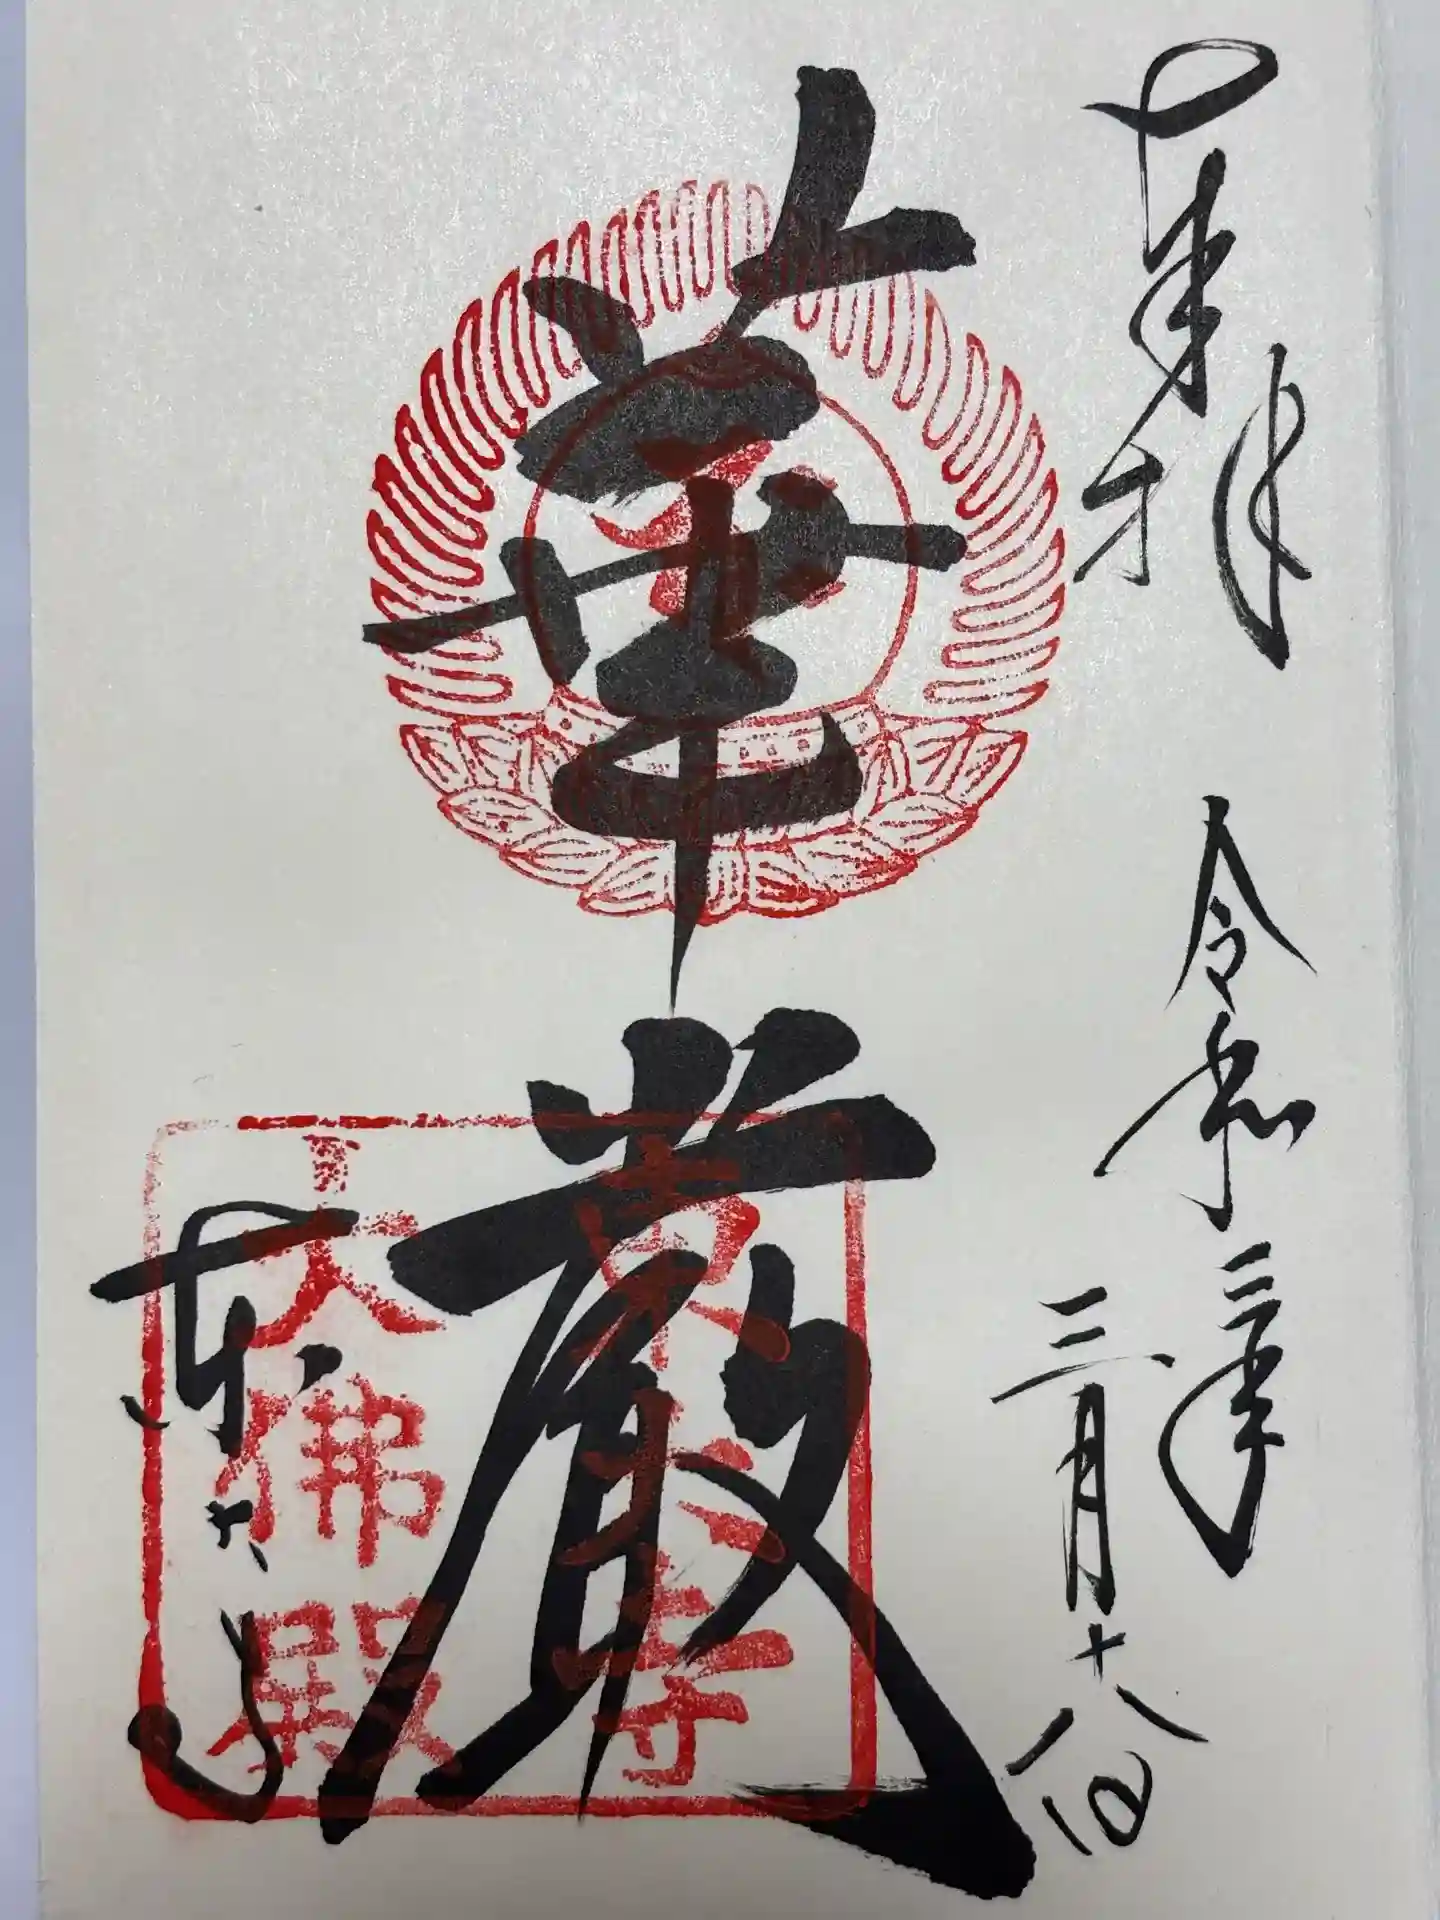 奉拝
令和三年
三月十八日
華厳
東大寺
東大寺
大佛殿